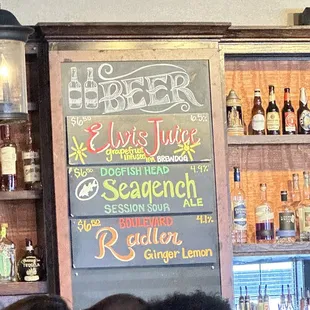 BEER
$6.50 6.5%
Elvis Juice
grapefruit
infused IPA BREWDOG
DOGFISH HEAD
$6.50 4.9%
Seaqench
ALE
SESSION SOUR
BOULEVARD
$6.50 4.1%
Radler
Ginger Lemon